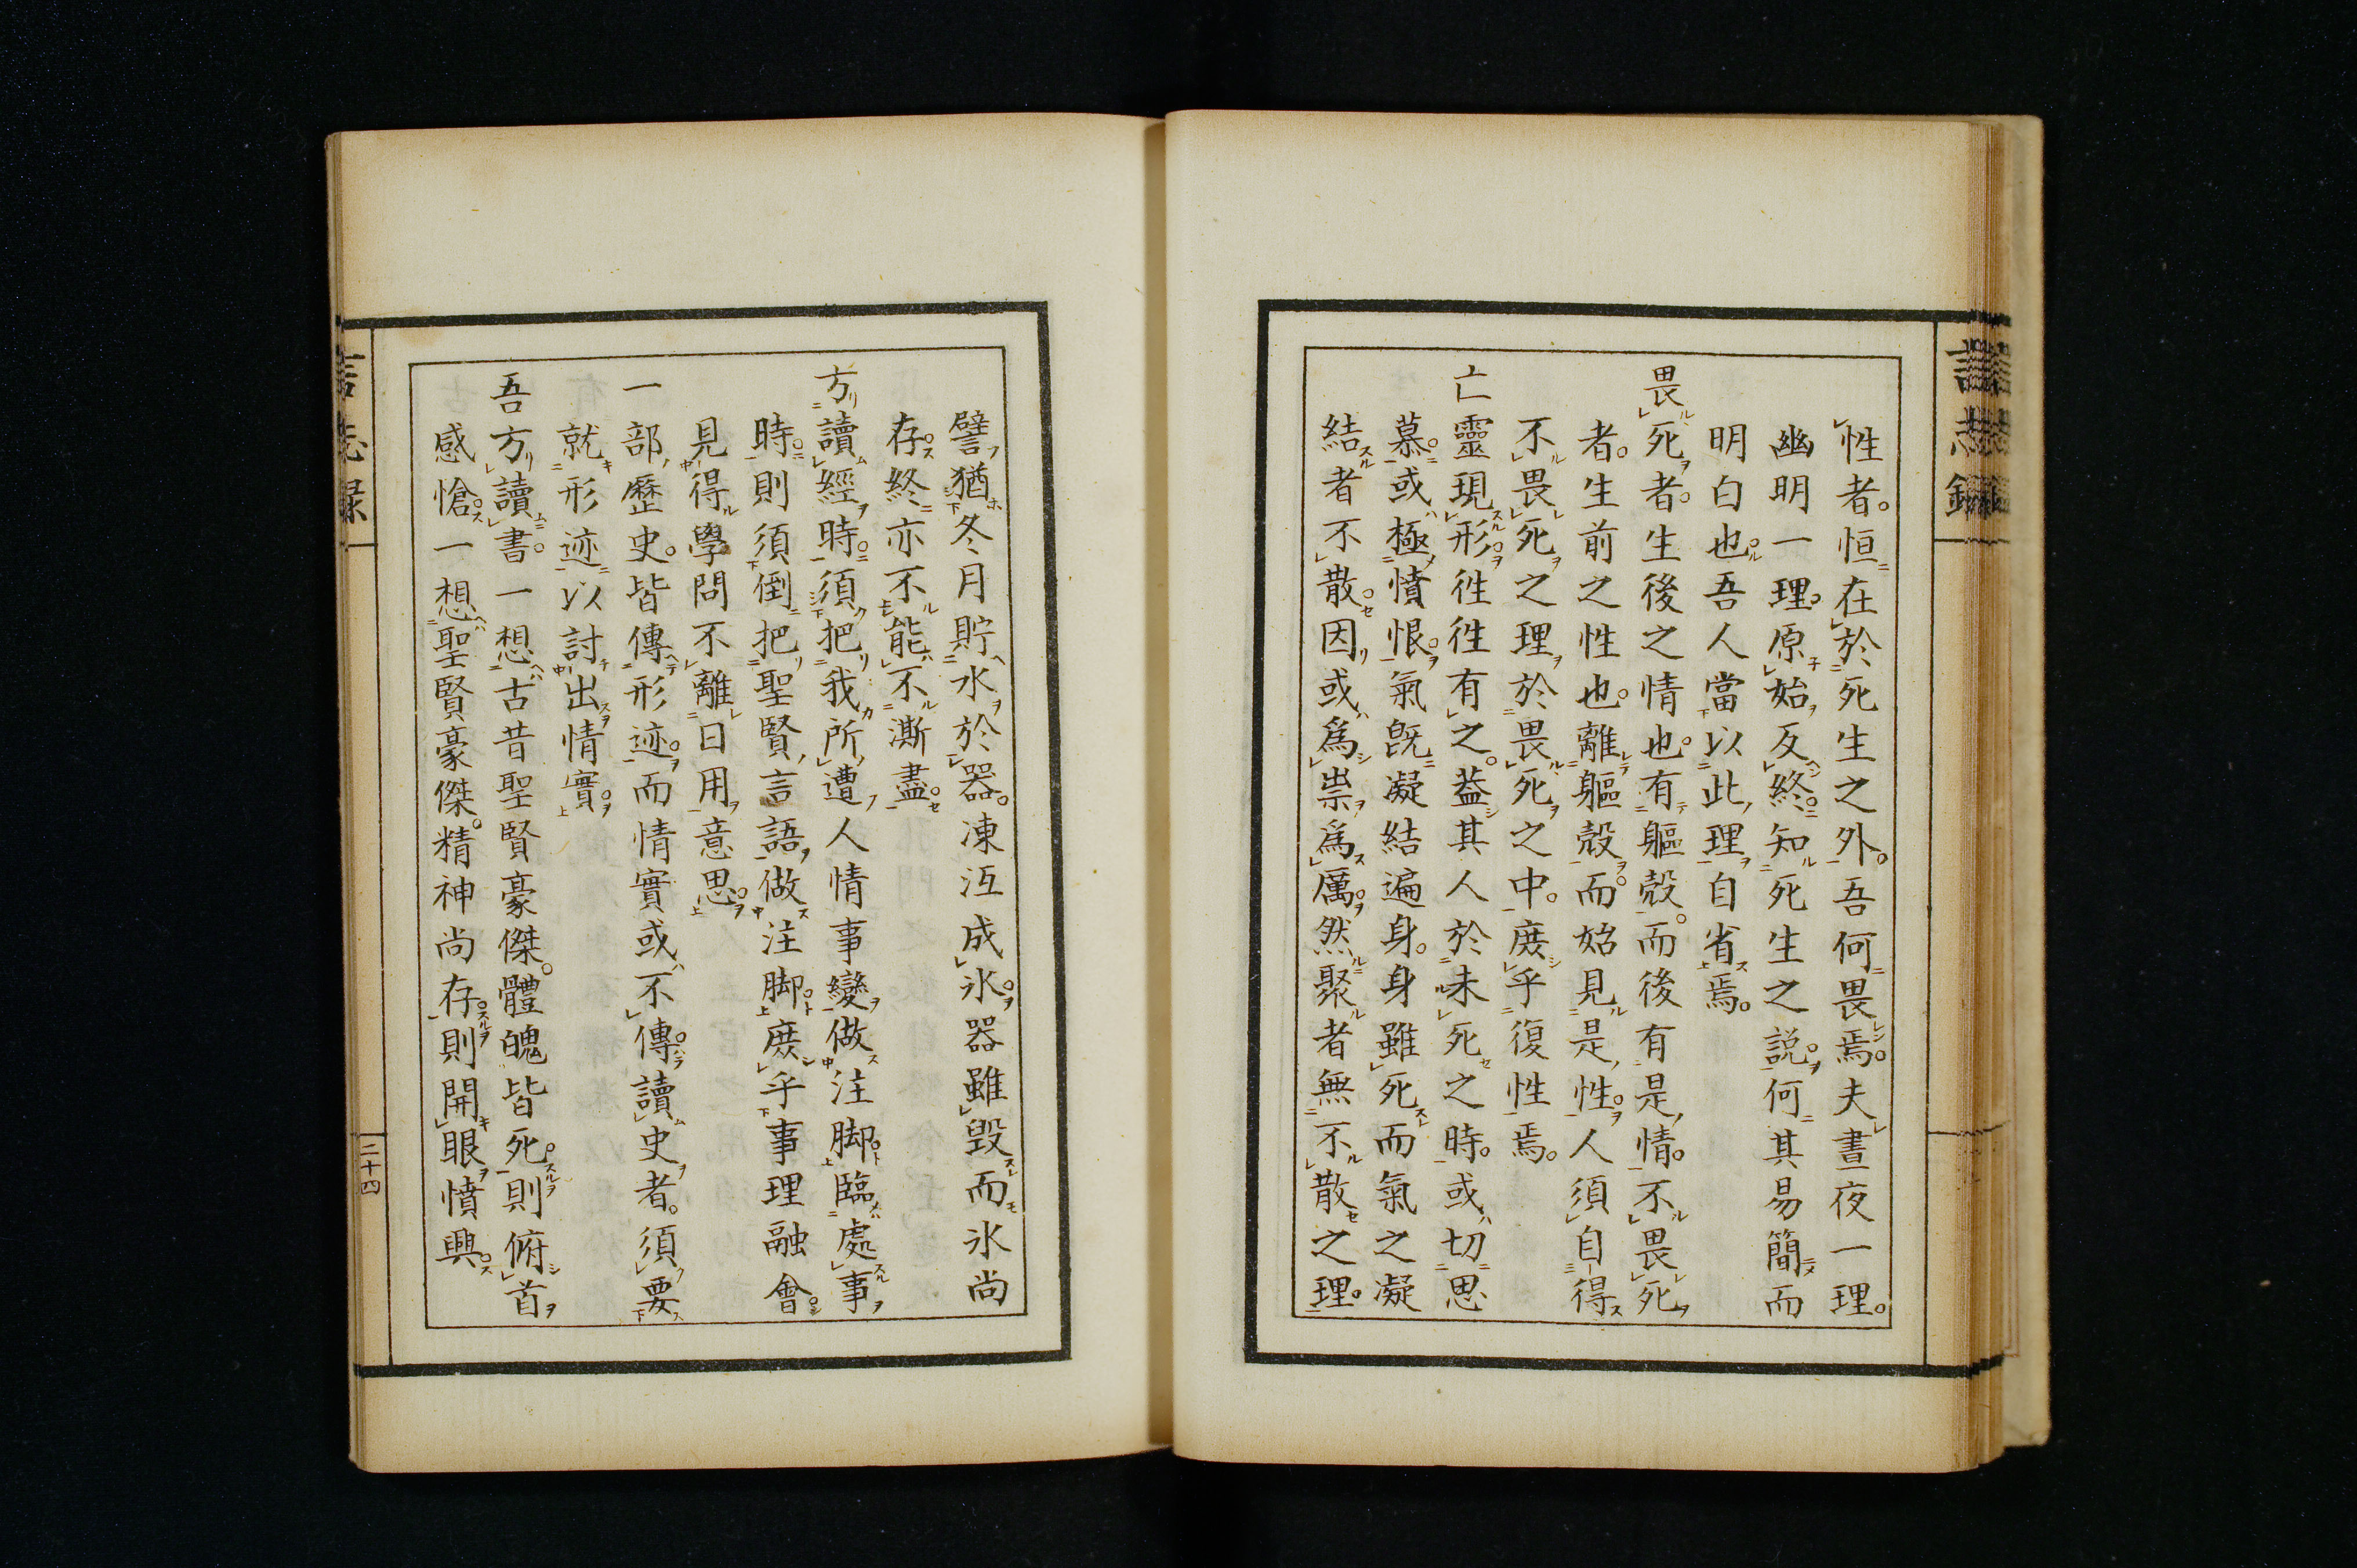 言志錄
性者。恒在於死生之外。吾何畏焉。夫晝夜一理。
幽明一理。原始反終。知死生之說。何其易簡而
明白也。吾人當以此理自省焉。
畏死者。生後之情也。有軀殼。而後有是情。不畏死
者。生前之性也。離軀殼。而始見是性。人須自得
不畏死之理於畏死之中。庶乎復性焉。
亡靈現形。徃徃有之。葢其人於未死之時。或切思
慕。或極憤恨。氣既凝結遍身。身雖死而氣之凝
結者不散。因或爲祟爲厲。然聚者無不散之理。
譬猶冬月貯水於器。凍沍成氷。器雖毀而氷尚
存。終亦不能不澌盡。
方讀經時。須把我所遭人情事變做注脚。臨處事
時。則須倒把聖賢言語做注脚。庶乎事理融會。
見得學問不離日用意思。
一部歷史。皆傳形迹。而情實或不傳。讀史者。須要
就形迹以討出情實。
吾方讀書。一想古昔聖賢豪傑。體魄皆死。則俯首
感愴。一想聖賢豪傑。精神尚存。則開眼憤興。
言志錄
二十四